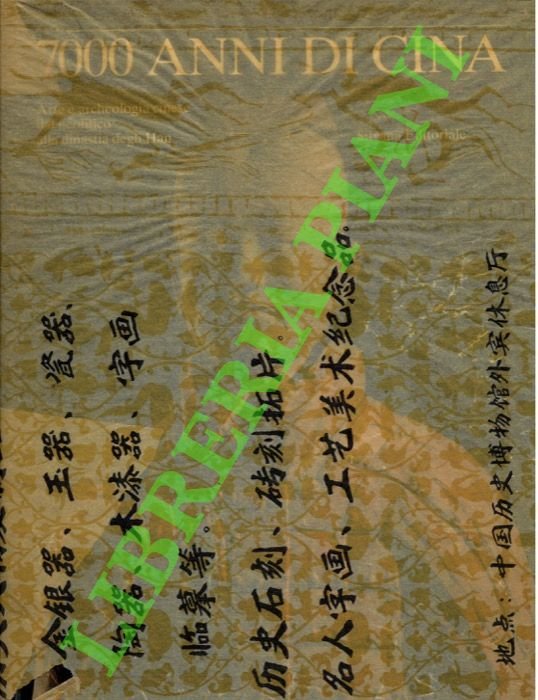 7000 ANNI DI CINA
Arte e archeologia cinese
dal neolitico
alla dinastia degli Han
Silvana Editoriale
金银器、玉器、瓷器、
陶器、木漆器、字画
临摹等。
历史石刻、砖刻拓片。
名人字画、工艺美术纪念品。
地点：中国历史博物馆外宾休息厅
LIBRERIA PIANI